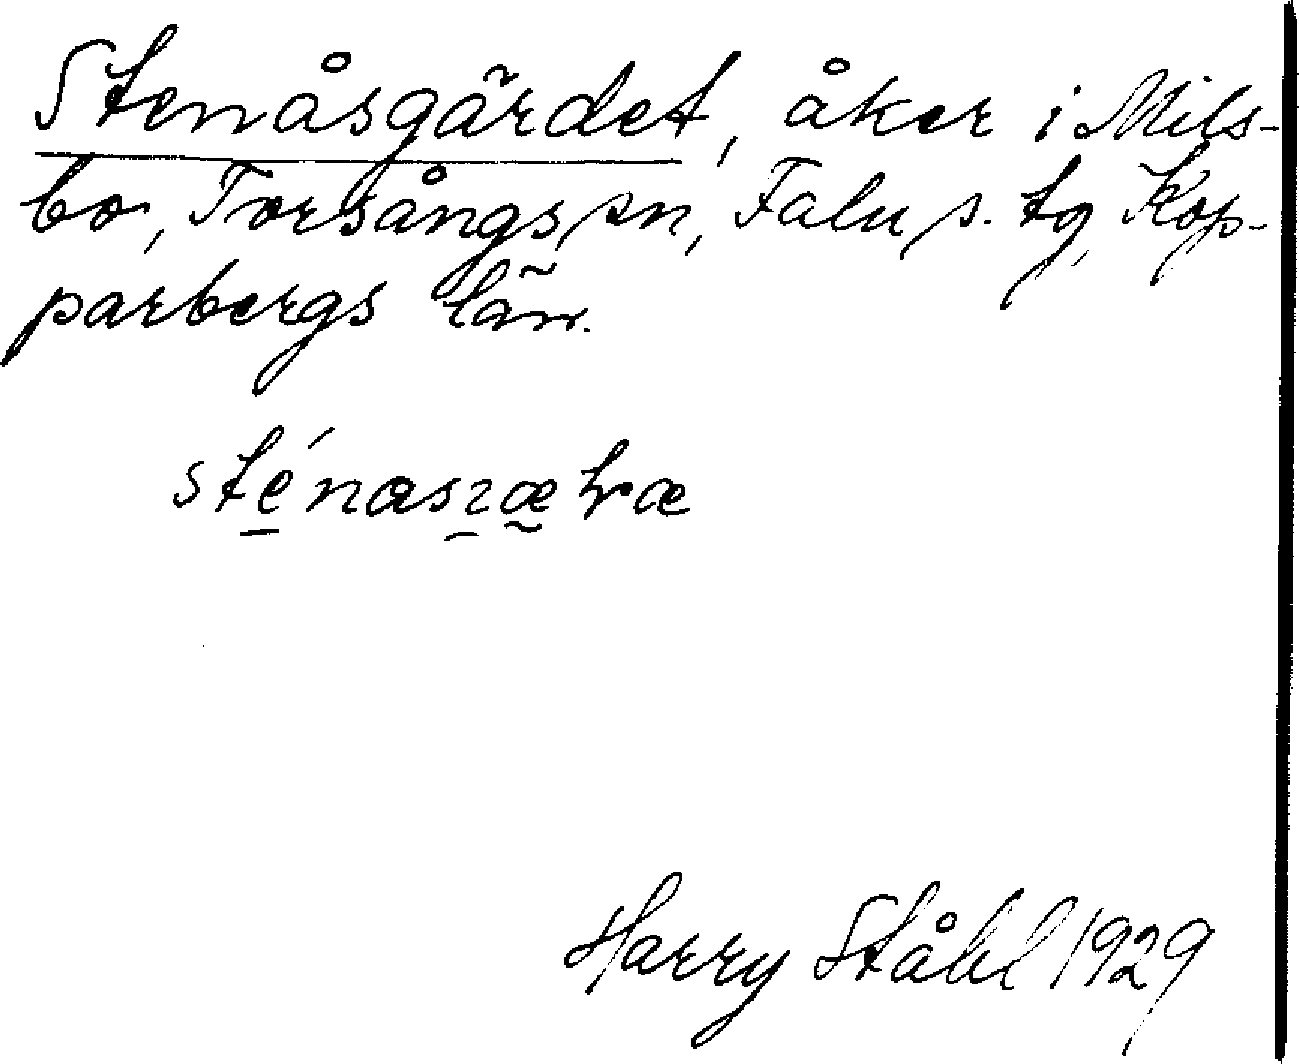 Stenåsgärdet, åker i Mils-
bo, Torsångs sn, Falu s. tg, Kop-
parbergs län.
Harry Ståhl 1929